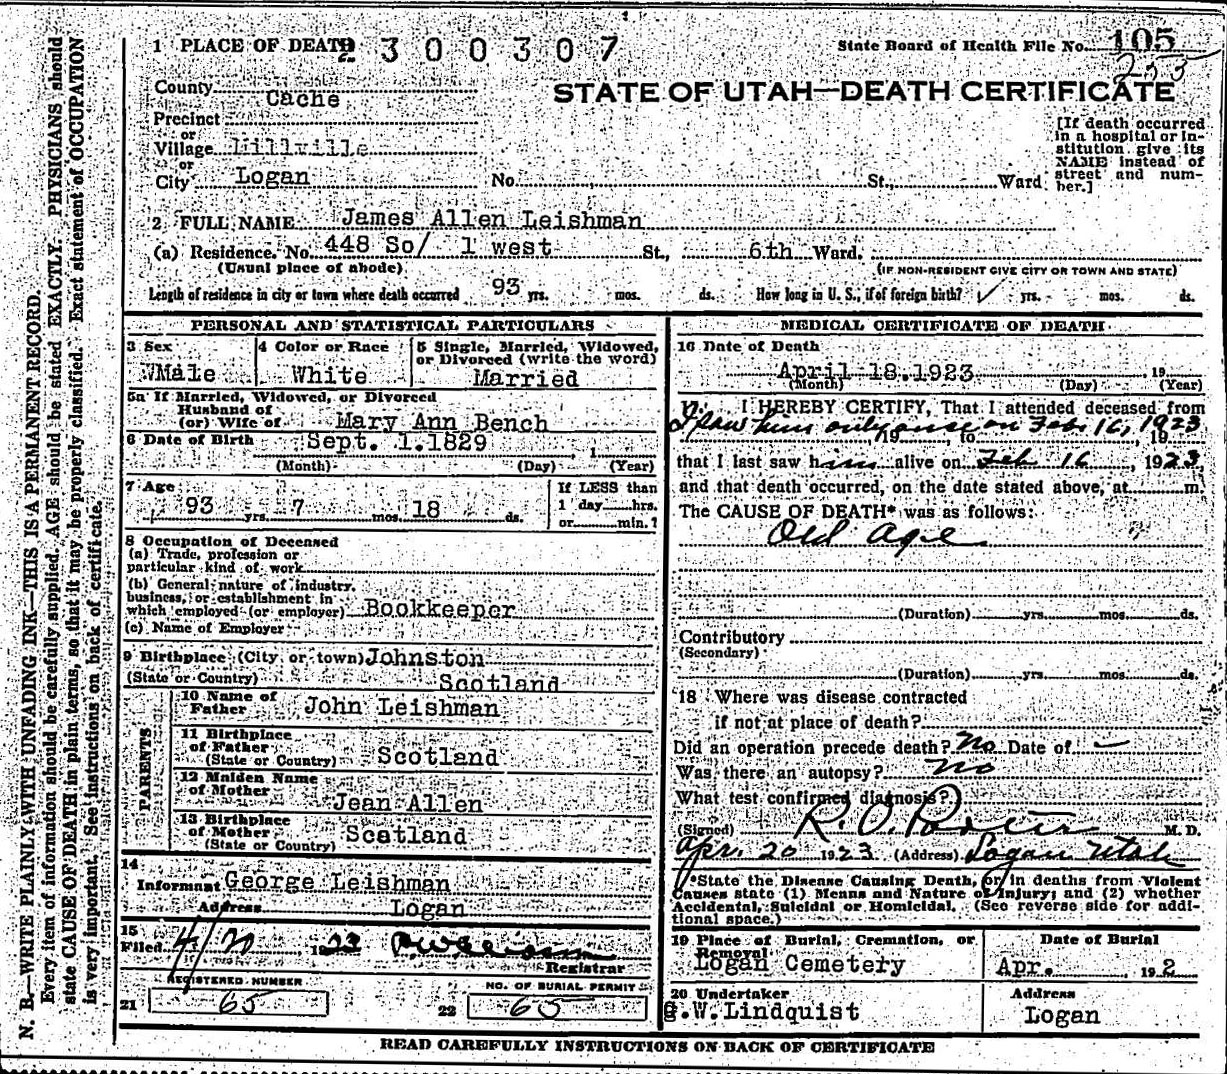 1 PLACE OF DEATH 2300307
State Board of Health File No. 105
255
County Cache
STATE OF UTAH—DEATH CERTIFICATE
Precinct
or
Village Millville
or
City Logan No. St., Ward
[If death occurred
in a hospital or in-
stitution give its
NAME instead of
street and num-
ber.]
2 FULL NAME James Allen Leishman
(a) Residence. No. 448 So/ 1 west St., 6th Ward.
(Usual place of abode) (IF NON-RESIDENT GIVE CITY OR TOWN AND STATE)
Length of residence in city or town where death occurred 93 yrs. mos. ds. How long in U. S., if of foreign birth? ✓ yrs. mos. ds.
PERSONAL AND STATISTICAL PARTICULARS
3 Sex
Male
4 Color or Race
White
5 Single, Married, Widowed,
or Divorced (write the word)
Married
5a If Married, Widowed, or Divorced
Husband of
(or) Wife of Mary Ann Bench
6 Date of Birth Sept. 1.1829 , 1
(Month) (Day) (Year)
7 Age
93 yrs. 7 mos. 18 ds.
If LESS than
1 day hrs.
or min.?
8 Occupation of Deceased
(a) Trade, profession or
particular kind of work
(b) General nature of industry,
business, or establishment in
which employed (or employer) Bookkeeper
(c) Name of Employer
9 Birthplace (City or town) Johnston
(State or Country) Scotland
PARENTS
10 Name of
Father John Leishman
11 Birthplace
of Father
(State or Country) Scotland
12 Maiden Name
of Mother
Jean Allen
13 Birthplace
of Mother
(State or Country) Scatland
14
Informant George Leishman
Address Logan
15
Filed 4/20 1923
Registrar
REGISTERED NUMBER
21 65
NO. OF BURIAL PERMIT
22 65
MEDICAL CERTIFICATE OF DEATH
16 Date of Death
April 18.1923 , 19
(Month) (Day) (Year)
17. I HEREBY CERTIFY, That I attended deceased from
I saw him only once on Feb. 16, 1923
, 19 , to , 19
that I last saw him alive on Feb 16 , 1923,
and that death occurred, on the date stated above, at m.
The CAUSE OF DEATH* was as follows:
Old age
(Duration) yrs. mos. ds.
Contributory
(Secondary)
(Duration) yrs. mos. ds.
18 Where was disease contracted
if not at place of death?
Did an operation precede death? No Date of —
Was there an autopsy? No
What test confirmed diagnosis?
(Signed) R. O. Porter M. D.
Apr. 20 1923 (Address) Logan Utah
*State the Disease Causing Death, or in deaths from Violent
Causes state (1) Means and Nature of Injury; and (2) whether
Accidental, Suicidal or Homicidal. (See reverse side for addi-
tional space.)
19 Place of Burial, Cremation, or
Removal
Logan Cemetery
Date of Burial
Apr. 192
20 Undertaker
.W.Lindquist
Address
Logan
READ CAREFULLY INSTRUCTIONS ON BACK OF CERTIFICATE
N. B.—WRITE PLAINLY WITH UNFADING INK—THIS IS A PERMANENT RECORD.
Every item of information should be carefully supplied. AGE should be stated EXACTLY. PHYSICIANS should
state CAUSE OF DEATH in plain terms, so that it may be properly classified. Exact statement of OCCUPATION
is very important. See instructions on back of certificate.